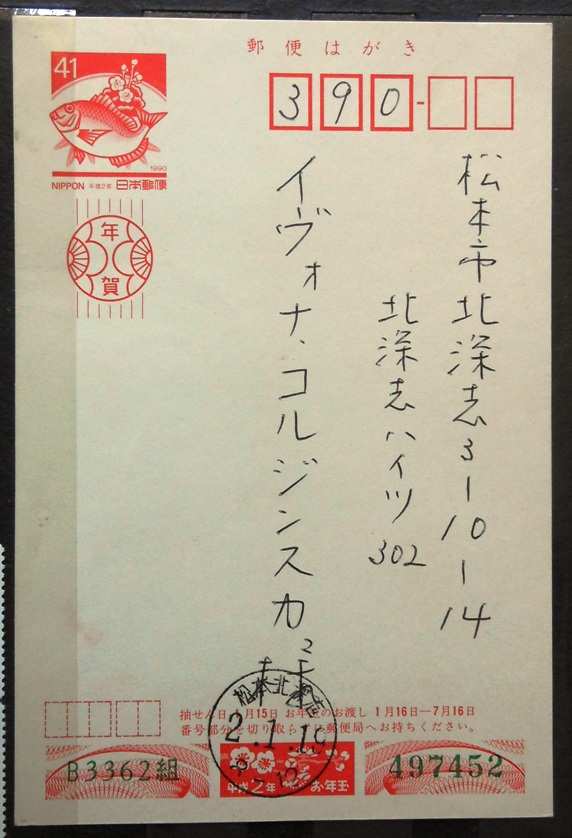 郵便はがき
41
1990
NIPPON 平成2年 日本郵便
年賀
390-
松本市北深志3-10-14
北深志ハイツ302
イヴォナ、コルジンスカ 様
松本北深志
2.1.1
8-12
抽せん日 1月15日 お年玉のお渡し 1月16日—7月16日
番号部分を切り取らずに郵便局へお持ちください。
B3362組
平成2年 お年玉
497452